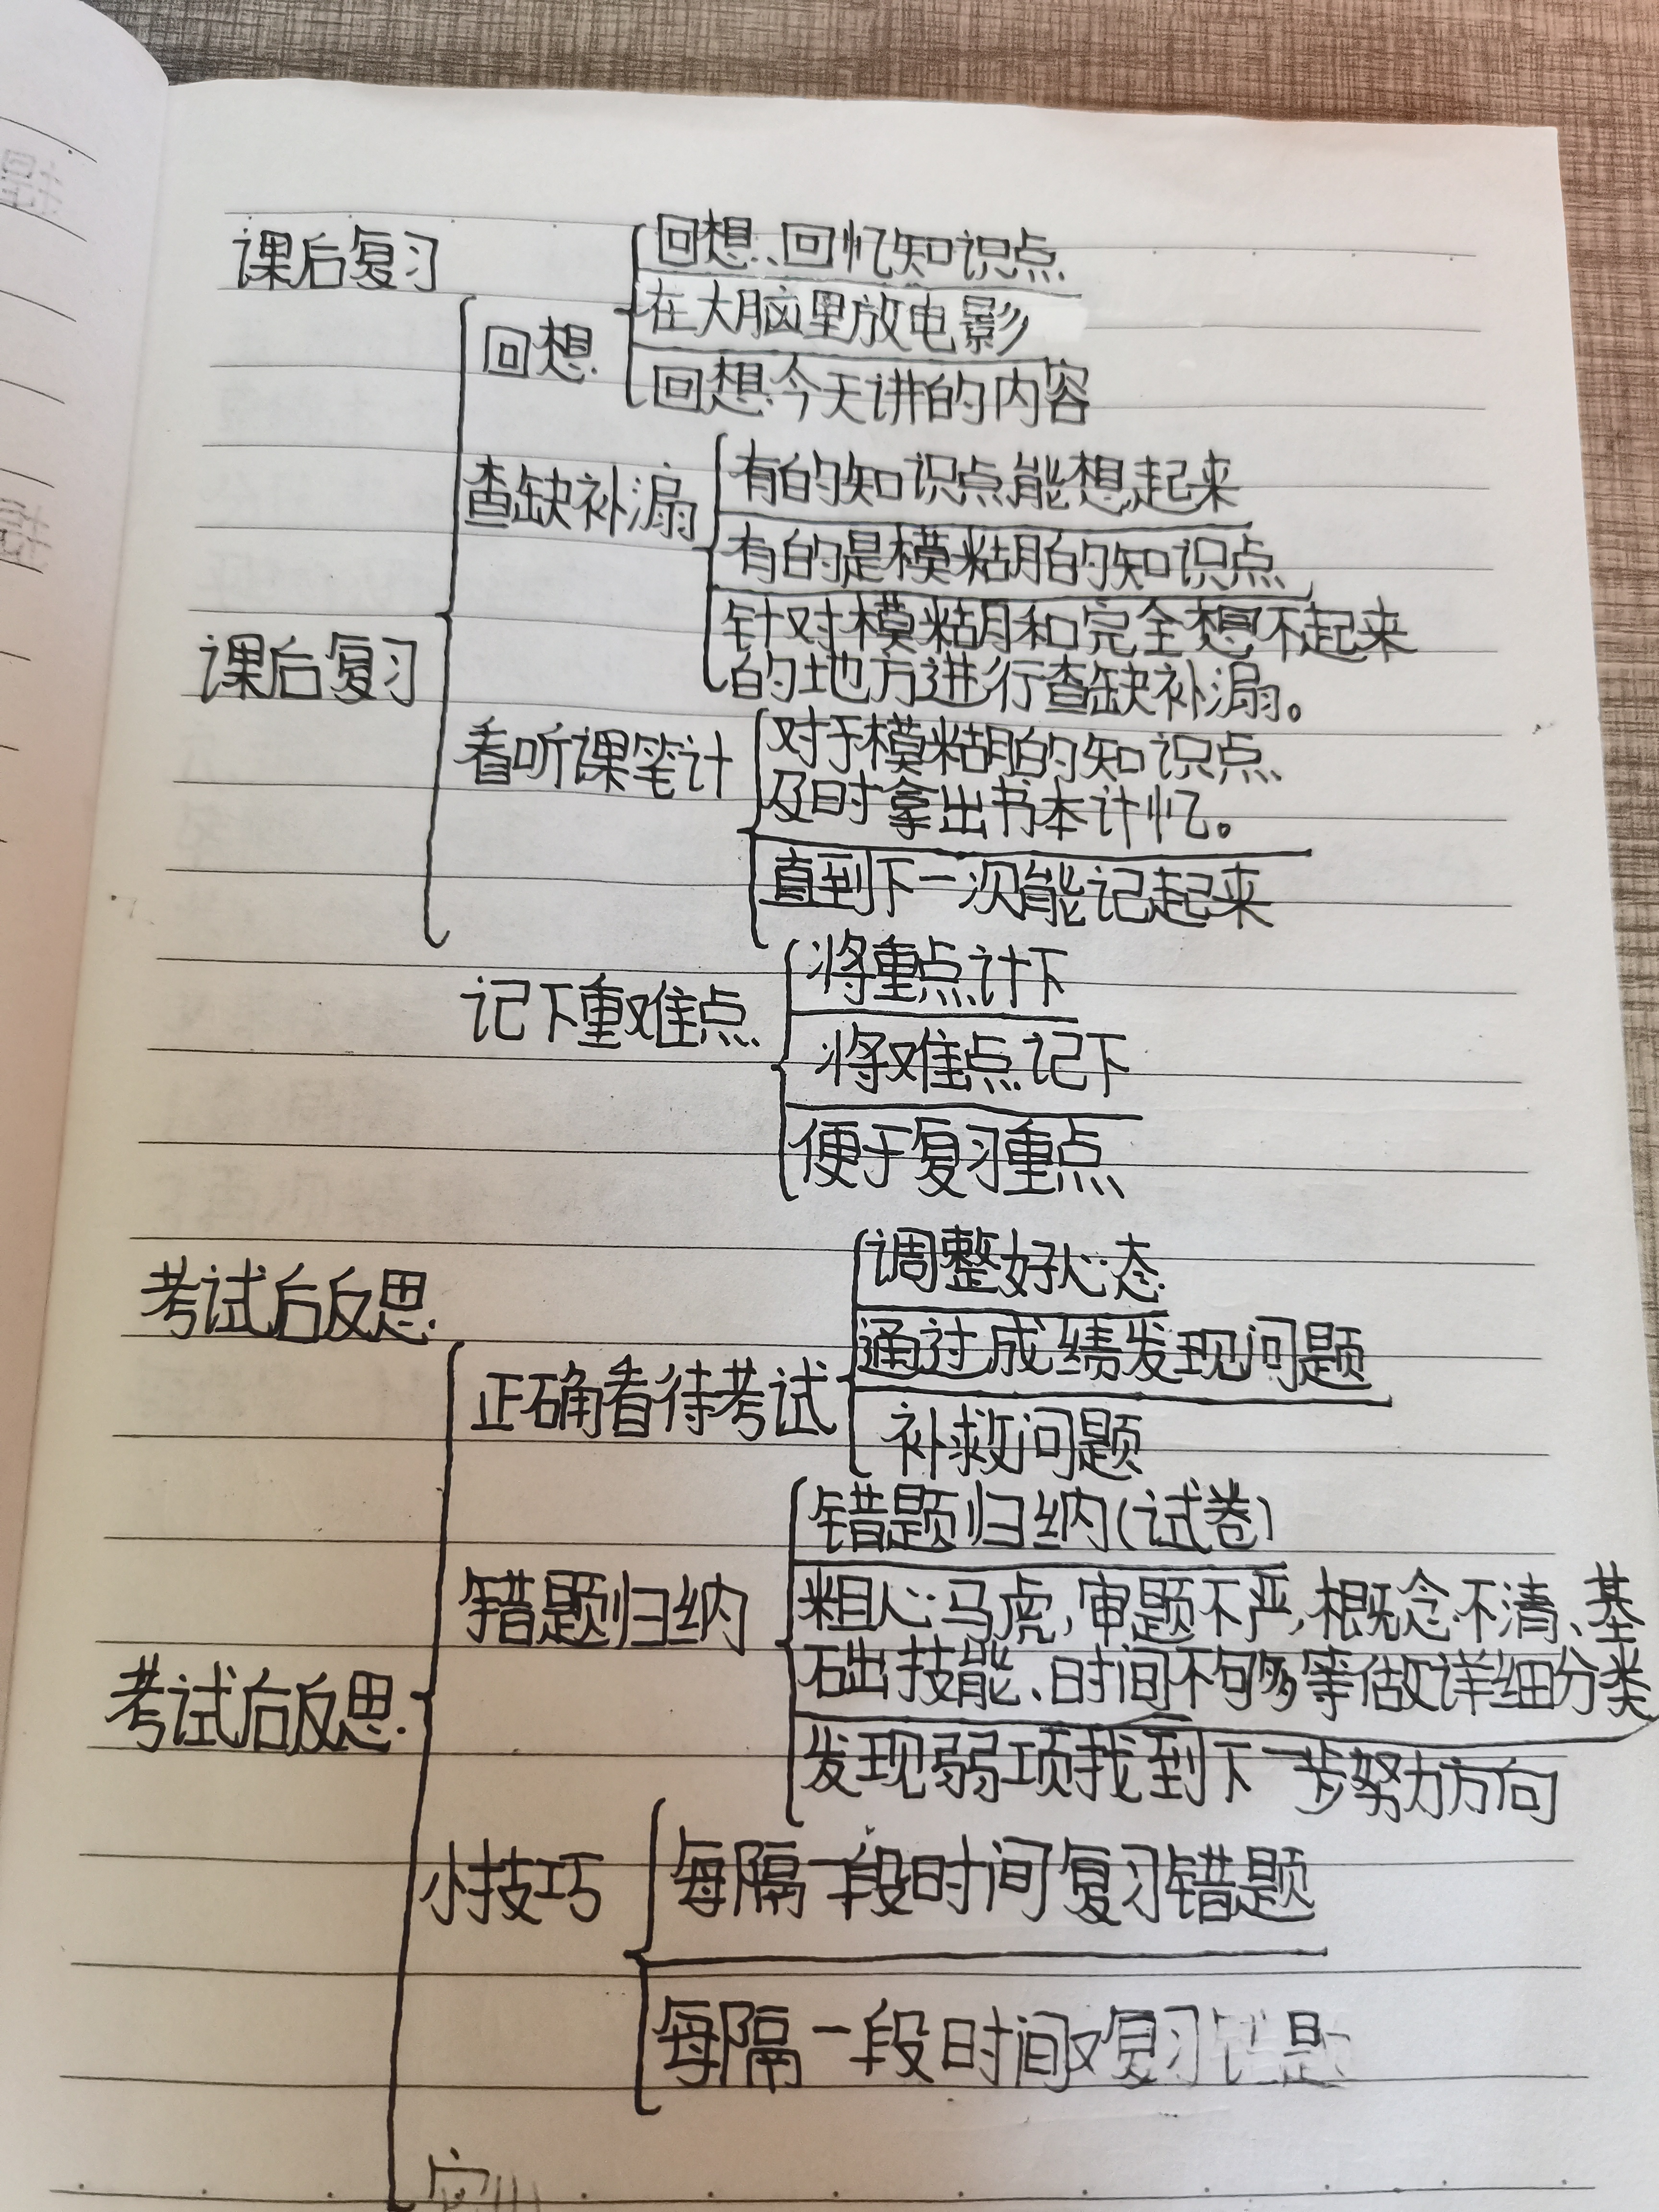 课后复习
回想、回忆知识点
在大脑里放电影
回想
回想今天讲的内容
查缺补漏
有的知识点能想起来
有的是模糊的知识点
针对模糊和完全想不起来
的地方进行查缺补漏。
课后复习
看听课笔计
对于模糊的知识点
及时拿出书本计忆。
直到下一次能记起来
记下重难点
将重点计下
将难点记下
便于复习重点
考试后反思
调整好心态
通过成绩发现问题
正确看待考试
补救问题
错题归纳(试卷)
错题归纳
粗心马虎,审题不严,概念不清、基
础技能、时间不够等做详细分类
考试后反思
发现弱项找到下一步努力方向
小技巧
每隔一段时间复习错题
每隔一段时间对复习错题